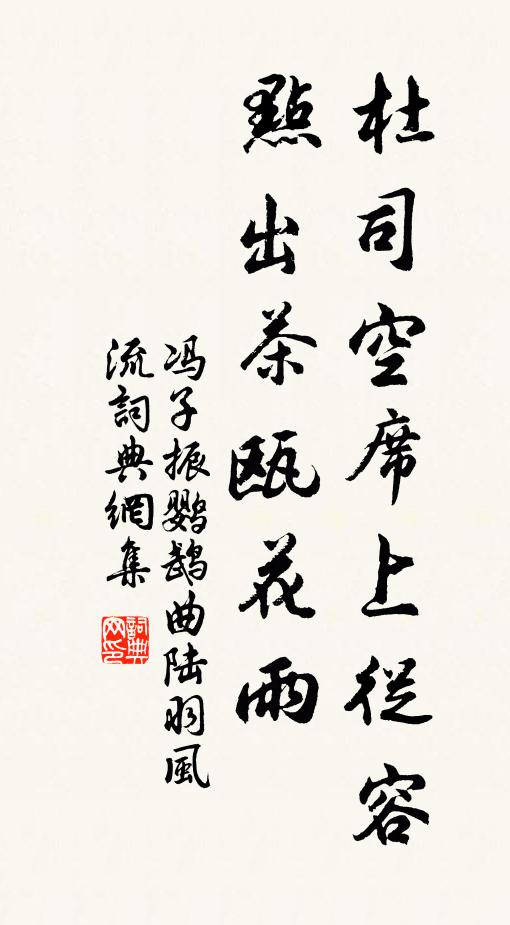 杜司空席上從容
點出茶甌花雨
冯子振鹦鵡曲陆羽風
流詞典網集
詞典网印